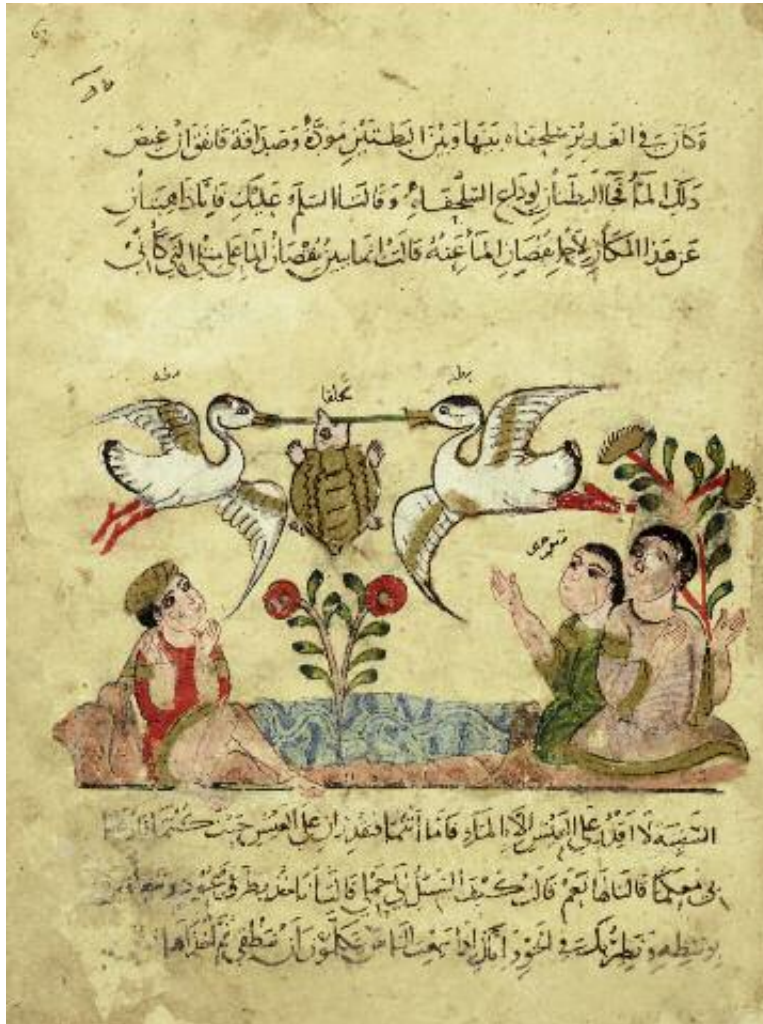 وكان في الغدير سلحفاه بينها وبين البطتين مودة وصداقة فاتفق ان غيض
ذلك الماء فجاء البطتان لوداع السلحفاه وقالتا السلم عليك فاننا ذاهبتان
عن هذا المكان لاجل نقصان الماء عنه قالت انما يبين نقصان الماء على مثلي التي كاني
بطه
بط
السفينه لا اقدر على العيش الا في الماء فاما أنتما فتقدران على العيش حيث كنتما فاذهبا
بي معكما قالتا لها نعم قالت كيف السبيل الى حملي قالتا ناخذ بطرفي عود
بوسطه ونطير بك في الجو واياك اذا سمعت الناس يتكلمون ان تنطقي ثم اخذاها